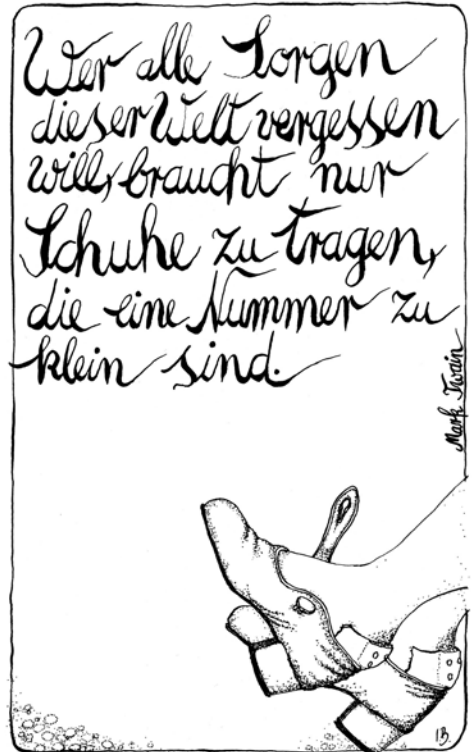 Wer alle Sorgen
dieser Welt vergessen
will, braucht nur
Schuhe zu tragen,
die eine Nummer zu
klein sind.
Mark Twain